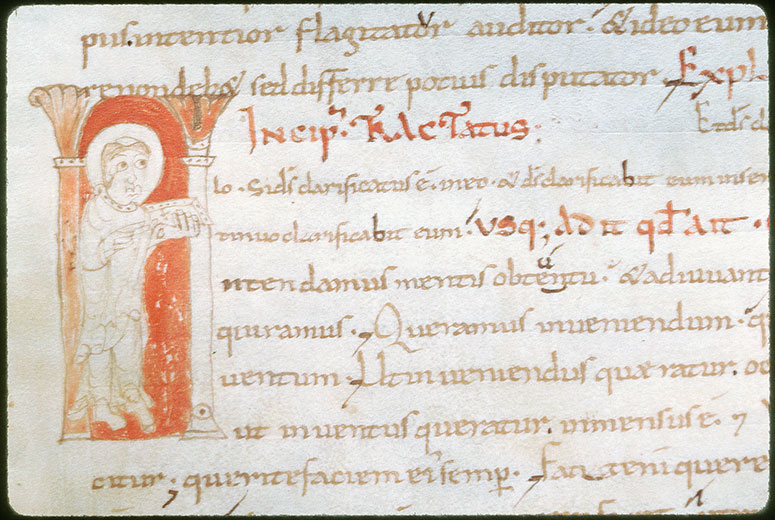 pus. intentior flagitatur auditor. & ideo eum
repondeb& sed differre potius disputator. Expl
Incip. Tractatus;
Et ds cla
lo. Si ds clarificatus ē. in eo. & ds clarificabit eum in sem
tinuo clarificabit eum. usq; ad it qd ait.
ntendamus mentis obtentu. & adiuvant
quramus. Queramus inveniendum. q
ventum. Ut inveniendus quæratur. oc
ut inventus queratur. inmensus ē. 7
citur. querite faciem eius semp. quere